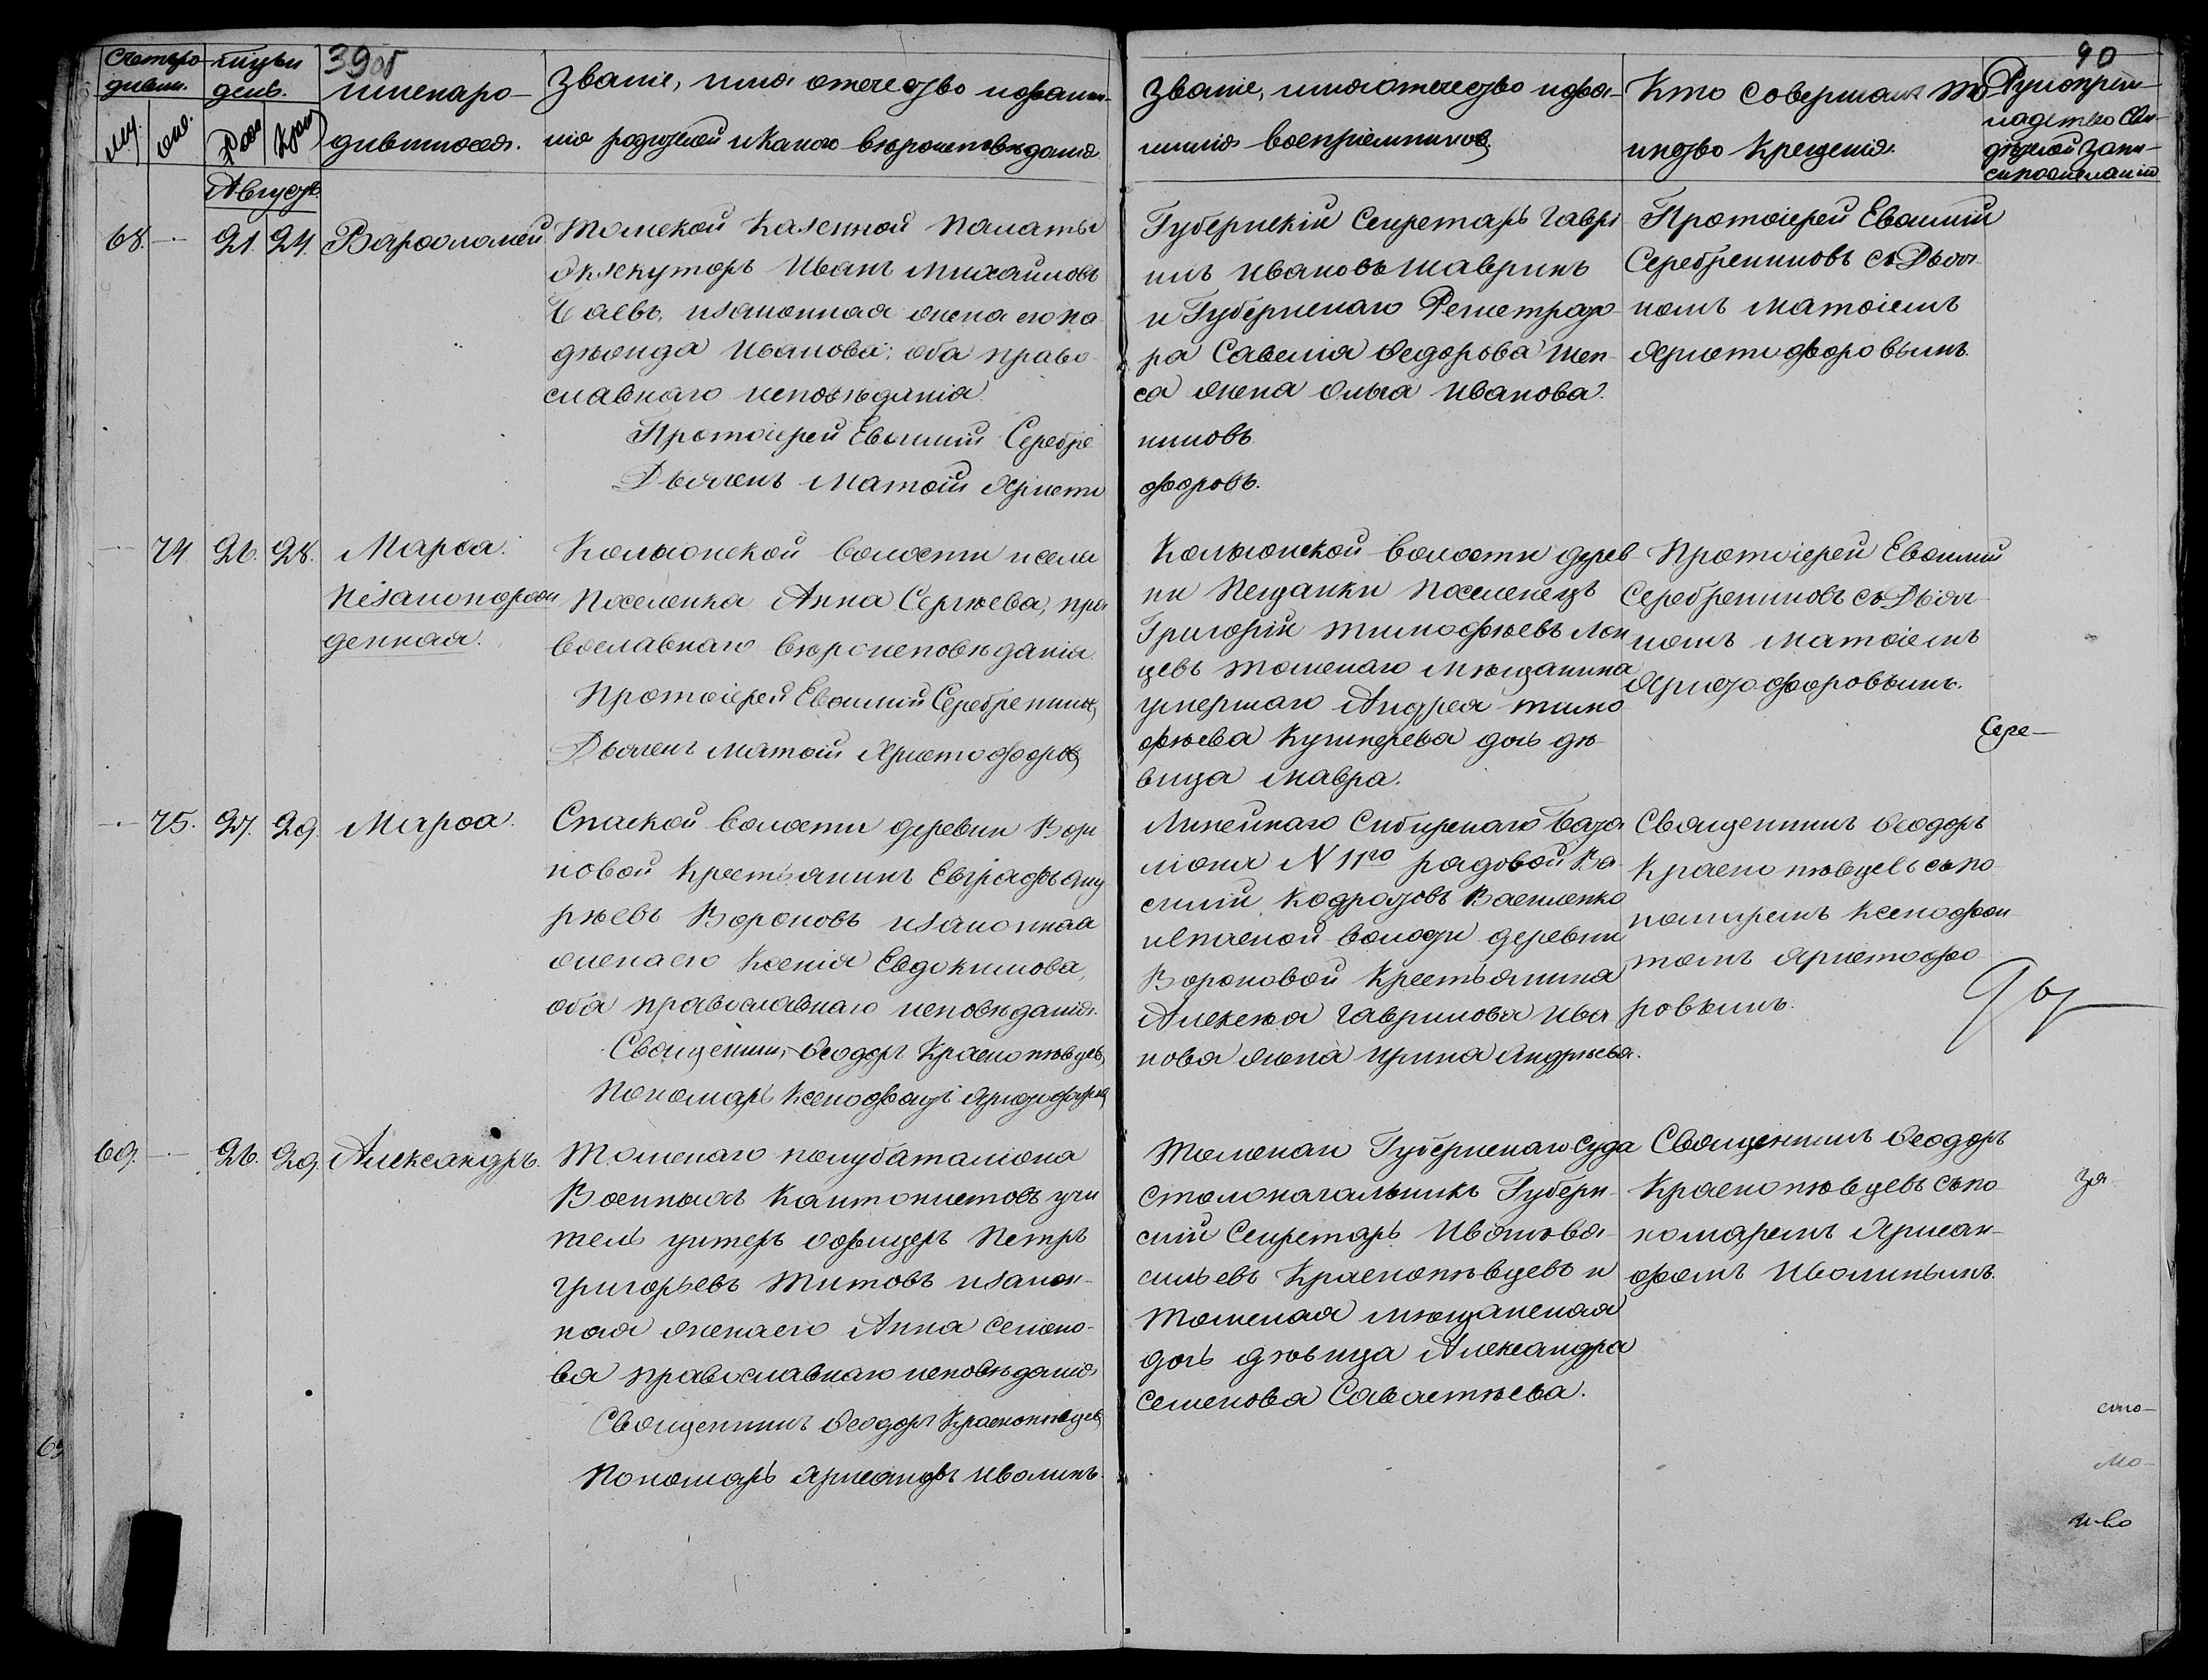 39об
Счетъ ро-
дивш.
му. же.
Мѣсяцъ и
день.
Рож. Крещ.
Имена ро-
дившихся.
Званіе, имя отечество и фами-
лія родителей и какого вѣроисповѣданія
Августъ.
68. — 21. 24. Варѳоломей.
Томской Казенной Палаты
Экзекуторъ Иванъ Михайловъ
Чаевъ, и законная жена его На
дѣжда Иванова; оба право
славнаго исповѣданія.
Протоіерей Евѳимій Серебре
Дьяконъ Матѳій Христо
— 74. 26. 28. Марѳа.
Незаконорож
денная.
Колыонской волости и села
Поселенка Анна Сергѣева, пра
вославнаго вѣроисповѣданія.
Протоіерей Евѳимій Серебрениковъ
Дьяконъ Матѳій Христофоровъ
— 75. 27. 29. Марѳа.
Спаской волости деревни Воро
новой Крестьянинъ Евграфъ Анд
рѣевъ Вороновъ и законная
жена его Ксенія Евдокимова,
оба православнаго исповѣданія.
Священникъ Ѳеодоръ Краснопѣвцевъ
Пономарь Ксенофонтъ Христофоровъ
69. — 26. 29. Александръ.
Томскаго полубаталіона
Военныхъ Кантонистовъ учи
тель унтеръ офицеръ Петръ
Григорьевъ Титовъ и закон-
ная жена его Анна Семено-
ва православнаго исповѣданія
Священникъ Ѳеодоръ Краснопѣвцевъ
Пономарь Хрисанфъ Иволинъ.
40
Званіе, имя отечество и фа-
милія воспріемниковъ.
Кто совершалъ та
инство Крещенія.
Рукоприк-
ладство сви-
дѣтелей запи-
си по желанію
Губернскій Секретарь Гаврі
илъ Ивановъ Шавринъ
и Губернскаго Регистрато
ра Савелія Ѳедорова Шеп-
са жена Ольга Иванова.
никовъ
форовъ.
Протоіерей Евѳимій
Серебрениковъ съ Дьяко-
номъ Матѳіемъ
Христофоровымъ.
Колыонской волости дерев
ни Пещанки Поселенецъ
Григорій Тимофѣевъ Лон
цевъ Томскаго мѣщанина
умершаго Андрея Тимо
фѣева Кушнерева дочь дѣ
вица Мавра.
Протоіерей Евѳимій
Серебрениковъ съ Дьяко-
номъ Матѳіемъ
Христофоровымъ.
Сере-
Линейнаго Сибирскаго Бата
ліона N 11го рядовой Ва-
силій Кодратовъ Василенко
и Спаской волости деревни
Вороновой Крестьянина
Алексѣя Гаврилова Ива
нова жена Ирина Андрѣева.
Священникъ Ѳеодоръ
Краснопѣвцевъ съ по-
номаремъ Ксенофон
томъ Христофо
ровымъ.
Томскаго Губернскаго Суда
Столоначальникъ Губерн-
скій Секретарь Иванъ Ва-
сильевъ Краснопѣвцевъ и
Томская мѣщанская
дочь дѣвица Александра
Семенова Савастѣева.
Священникъ Ѳеодоръ
Краснопѣвцевъ съ по-
номаремъ Хрисан-
фомъ Иволинымъ.
За
сто-
Мо-